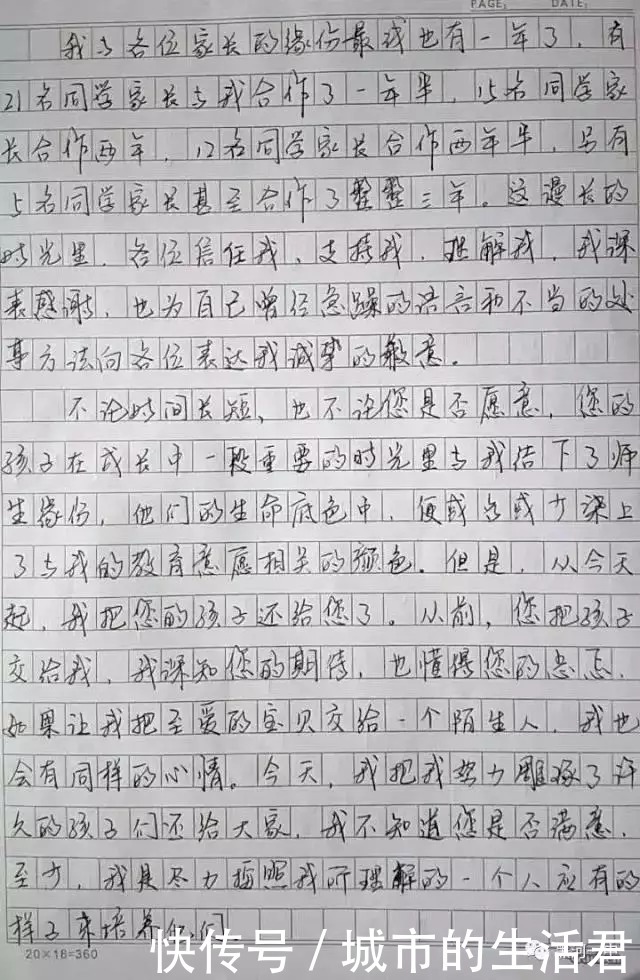 PAGE: DATE:
我与各位家长的缘份最残也有一年了，有
21名同学家长与我合作了一年半，15名同学家
长合作两年，12名同学家长合作两年半，另有
5名同学家长甚至合作了整整三年。这漫长的
时光里，各位信任我、支持我、理解我，我深
表感谢，也为自己曾经急躁的语言和不当的处
事方法向各位表达我诚挚的歉意。
不论时间长短，也不论您是否愿意，您的
孩子在成长中一段重要的时光里与我结下了师
生缘份，他们的生命底色中，便或多或少染上
了与我的教育意愿相关的颜色。但是，从今天
起，我把您的孩子还给您了。从前，您把孩子
交给我，我深知您的期待，也懂得您的忐忑，
如果让我把至爱的宝贝交给一个陌生人，我也
会有同样的心情。今天，我把我努力雕琢了许
久的孩子们还给大家，我不知道您是否满意，
至少，我是尽力按照我所理解的一个人应有的
样子来培养他们
20×18=360
快传号/城市的生活君